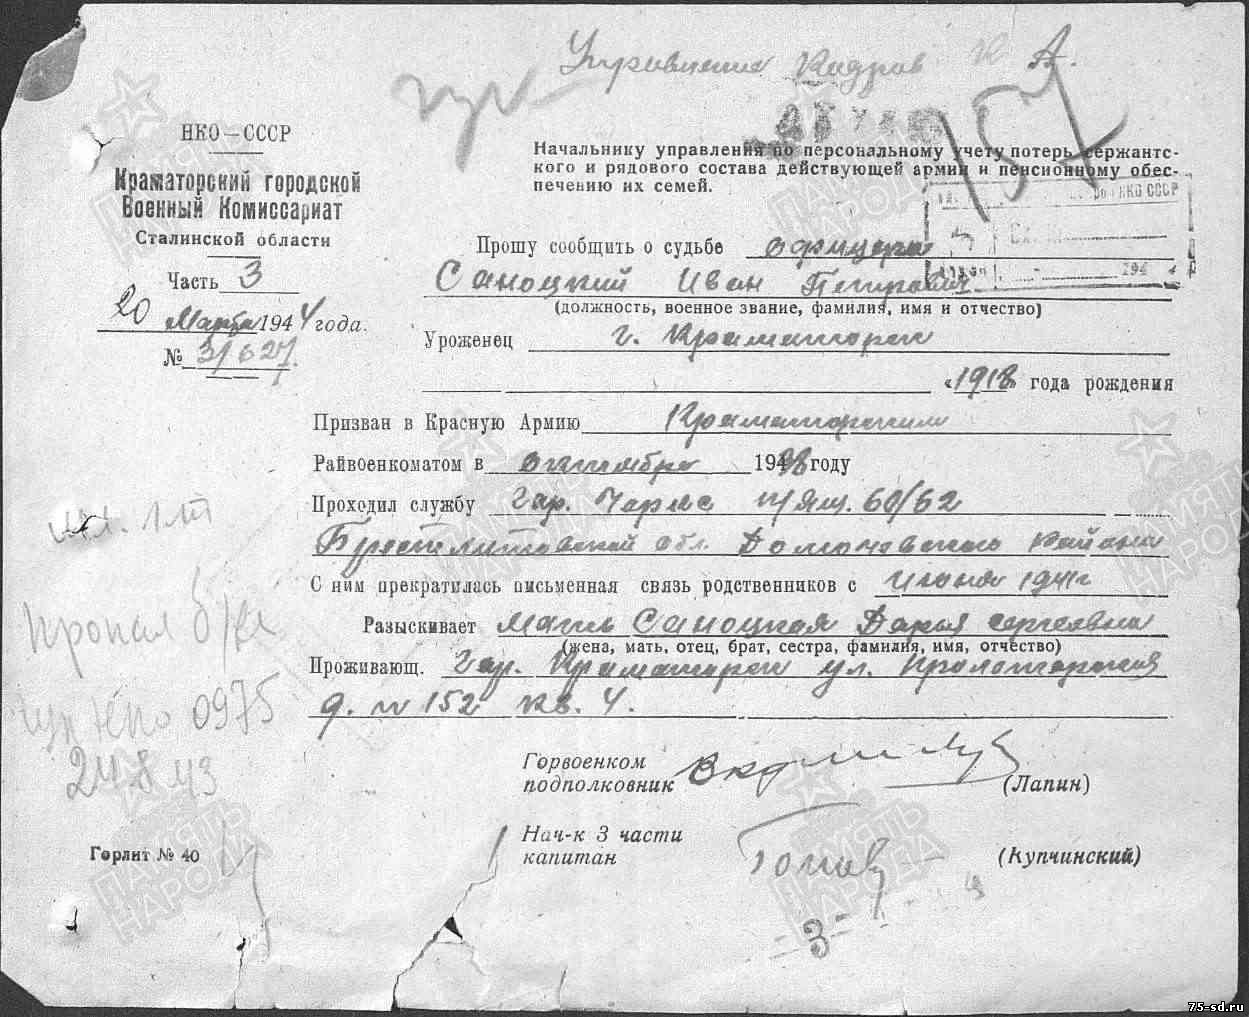 Управление Кадров К А.
157
НКО—СССР
Краматорский городской
Военный Комиссариат
Сталинской области
Часть 3
20 Марта 1944 года.
№ 3/627
Начальнику управления по персональному учету потерь сержантс-
кого и рядового состава действующей армии и пенсионному обес-
печению их семей.
НКО СССР
194
Прошу сообщить о судьбе офицера
Саноцкий Иван Петрович
(должность, военное звание, фамилия, имя и отчество)
Уроженец г. Краматорск
«1918» года рождения
Призван в Красную Армию Краматорским
Райвоенкоматом в октябре 194 году
Проходил службу гор. п/ящ. 60/62
обл. Домачевского района
С ним прекратилась письменная связь родственников с июня 1941г
Разыскивает мать Саноцкая Дарья Сергеевна
(жена, мать, отец, брат, сестра, фамилия, имя, отчество)
Проживающ. гор. Краматорск ул.
д. № 152 кв. 4.
мл. л-т
пропал б/в
ГУК НКО 0975
24 8 43
Горвоенком
подполковник (Лапин)
Нач-к 3 части
капитан (Купчинский)
Горлит № 40
3
ПАМЯТЬ НАРОДА
75-sd.ru